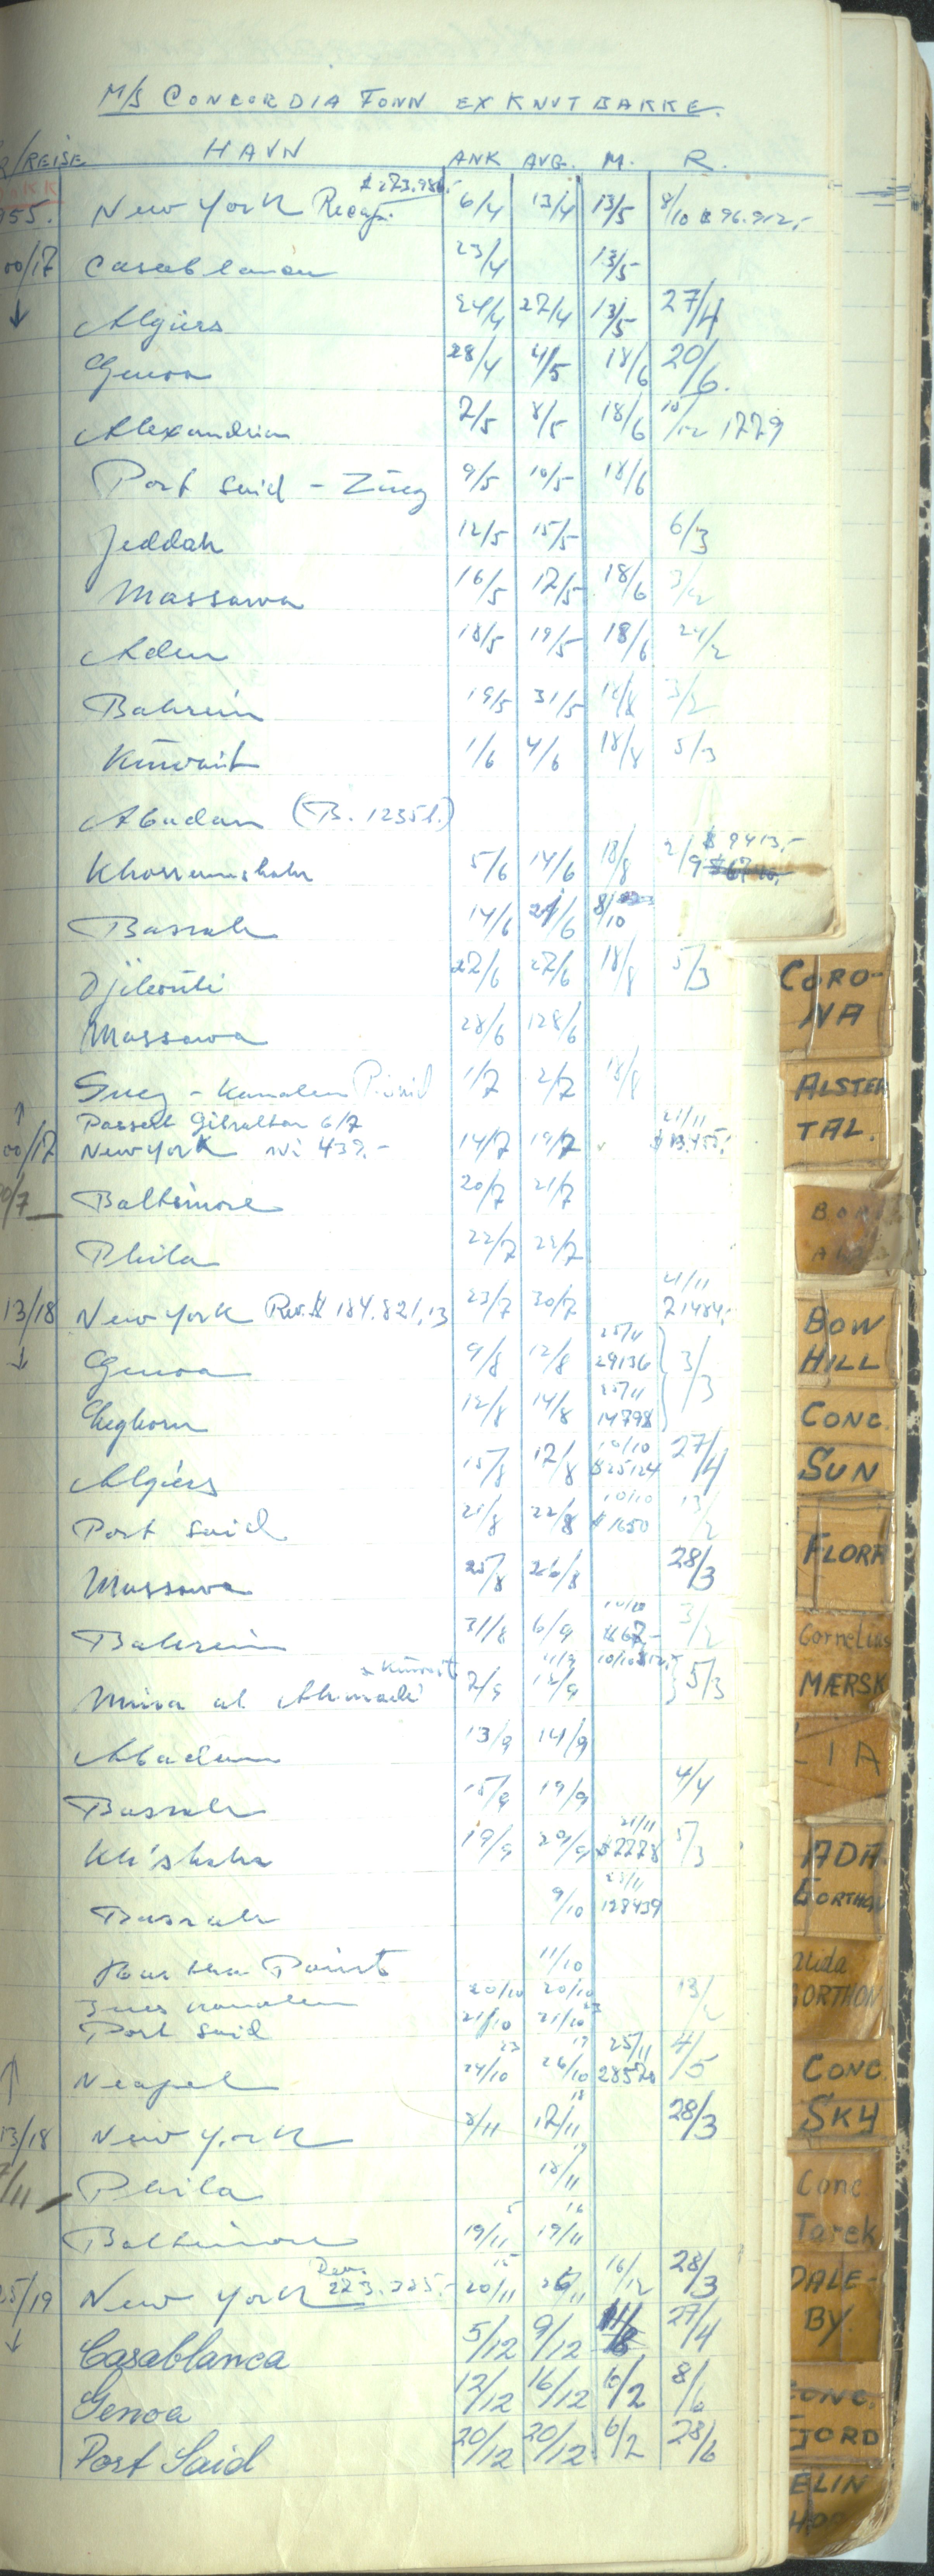 M/S CONCORDIA FONN EX KNUT BAKKE.
R/REISE HAVN ANK AVG. M. R.
955. New York Recap. $ 273.986.- 6/4 13/4 13/5 8/10 $ 96.912,-
00/17 Casablanca 23/4 13/5
↓ Algiers 24/4 27/4 13/5 27/4
Genoa 28/4 4/5 18/6 20/6.
Alexandria 7/5 8/5 18/6 1229
Port Said - Zuez 9/5 10/5 18/6
Jeddah 12/5 15/5 6/3
Massawa 16/5 17/5 18/6 3/2
Aden 18/5 19/5 18/6 21/2
Bahrein 19/5 31/5 18/8 3/2
Kuwait 1/6 4/6 18/8 5/3
Abadan (B. 1235 t.)
Khorramshahr 5/6 14/6 18/8 2/9 $ 9413,-
Basrah 14/6 21/6 8/10
Djibouti 27/6 27/6 18/8 5/3
Massawa 28/6 28/6
Suez - Kanalen P. Said 1/7 2/7 18/8
Passert Gibraltar 6/7 21/11
00/17 New York 439.- 14/7 19/7 $ 13.455,-
Baltimore 20/7 21/7
Phila 22/7 22/7
21/11
13/18 New York Rev. $ 184.821,13 23/7 30/7 21484,-
↓ Genoa 9/8 12/8 25/11 29136 3/3
Leghorn 12/8 14/8 25/11 14798
Algiers 15/8 17/8 10/10 $ 25124 27/4
Port Said 21/8 22/8 10/10 $ 1650 13/2
Massawa 25/8 26/8 28/3
Bahrein 31/8 6/9 10/10 3/2
Mina al Ahmadi & Kuwait 7/9 11/9 12/9 10/10 5/3
Abadan 13/9 14/9
Basrah 15/9 19/9 4/4
Kh'shahr 19/9 20/9 21/11 $ 2278 5/3
Basrah 9/10 25/11 128439
Point 11/10
Suez kanalen 20/10 20/10 13/2
Port Said 21/10 21/10
↑ Neapel 24/10 26/10 25/11 28520 4/5
13/18 New York 8/11 17/11 28/3
7/11 Phila 18/11
Baltimore 19/11 19/11
25/19 New York Rev. 223.225.- 20/11 26/11 16/12 28/3
↓ Casablanca 5/12 9/12 27/4
Genoa 12/12 16/12 6/2 8/6
Port Said 20/12 20/12 6/2 28/6
CORO-
NA
ALSTER
TAL.
BOW
HILL
CONC.
SUN
FLORA
Cornelius
MÆRSK
LIA
ADA
GORTHON
GORTHON
CONC
SKY
Conc
Tarek
DALE-
BY.
CONC.
FJORD
ELIN